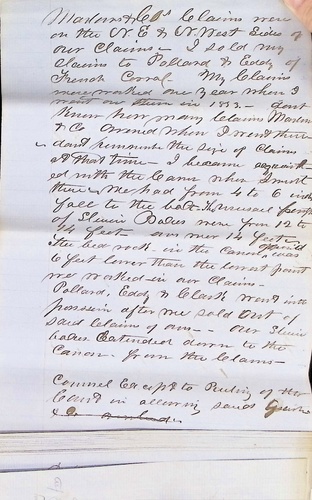 & Co's Claims were
on the N. E & N. West Sides of
our Claims - I sold my
claims to Pollard & Eddy of
French Corral - My Claims
were worked one year when I
went on them in 1853 - dont
know how many Claims
& Co owned when I went there
- dont remember the size of Claims
at that time - I became acquaint
ed with the Canon when I went
there - we had from 4 to 6 inch
fall to the box - the usual length
of Sluice Boxes were from 12 to
14 feet our were 14 feet
the bed rock in the Canon was
6 feet lower than the lowest point
we worked in our Claims -
Pollard, Eddy & Clark went into
possession after we sold out of
said Claims of ours - Our Sluice
boxes extended down to the
Canon from the Claims -
Counsel Except to Ruling of the
Court in allowing said
& Co